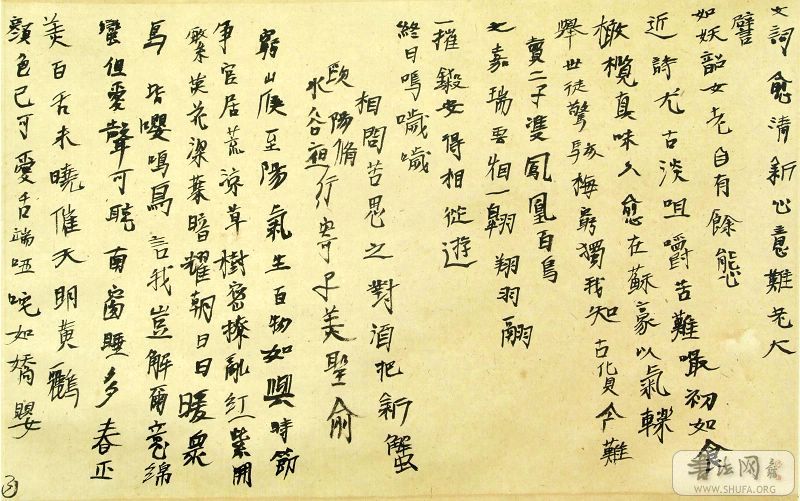 文詞愈清新心意難老大
譬
如妖韶女老自有餘態
近詩尤古淡咀嚼苦難嘬初如食
橄欖真味久愈在蘇豪以氣轢
舉世徒驚駭梅窮獨我知古貨今難
賣二子雙鳳凰百鳥
之嘉瑞雲烟一翱翔羽翮
一摧鎩安得相從遊
終日鳴噦噦
相問苦思之對酒把新蟹
歐陽脩
水谷夜行寄子美聖俞
窮山候至陽氣生百物如與時節
爭官居荒涼草樹密撩亂紅紫開
繁英花深葉暗耀朝日日暖衆
鳥皆嚶鳴鳥言我豈解爾意綿
蠻但愛聲可聽南窗睡多春正
美百舌未曉催天明黃鸝
顏色已可愛舌端啞咤如嬌嬰
书法网
WWW.SHUFA.ORG